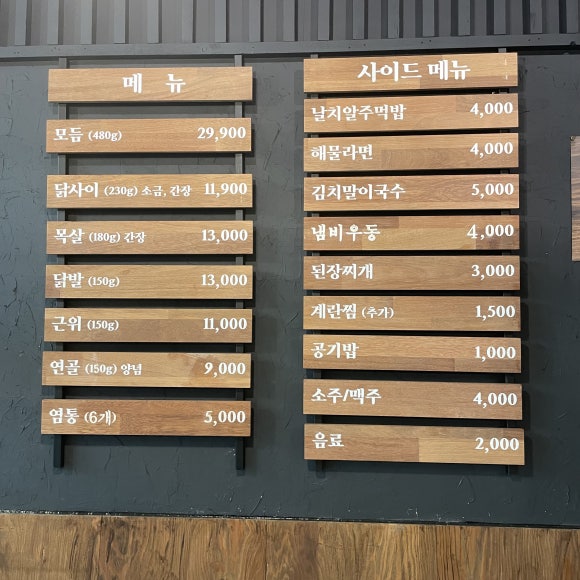 메 뉴
모듬 (480g) 29,900
닭사이 (230g) 소금, 간장 11,900
목살 (180g) 간장 13,000
닭발 (150g) 13,000
근위 (150g) 11,000
연골 (150g) 양념 9,000
염통 (6개) 5,000
사이드 메뉴
날치알주먹밥 4,000
해물라면 4,000
김치말이국수 5,000
냄비우동 4,000
된장찌개 3,000
계란찜 (추가) 1,500
공기밥 1,000
소주/맥주 4,000
음료 2,000